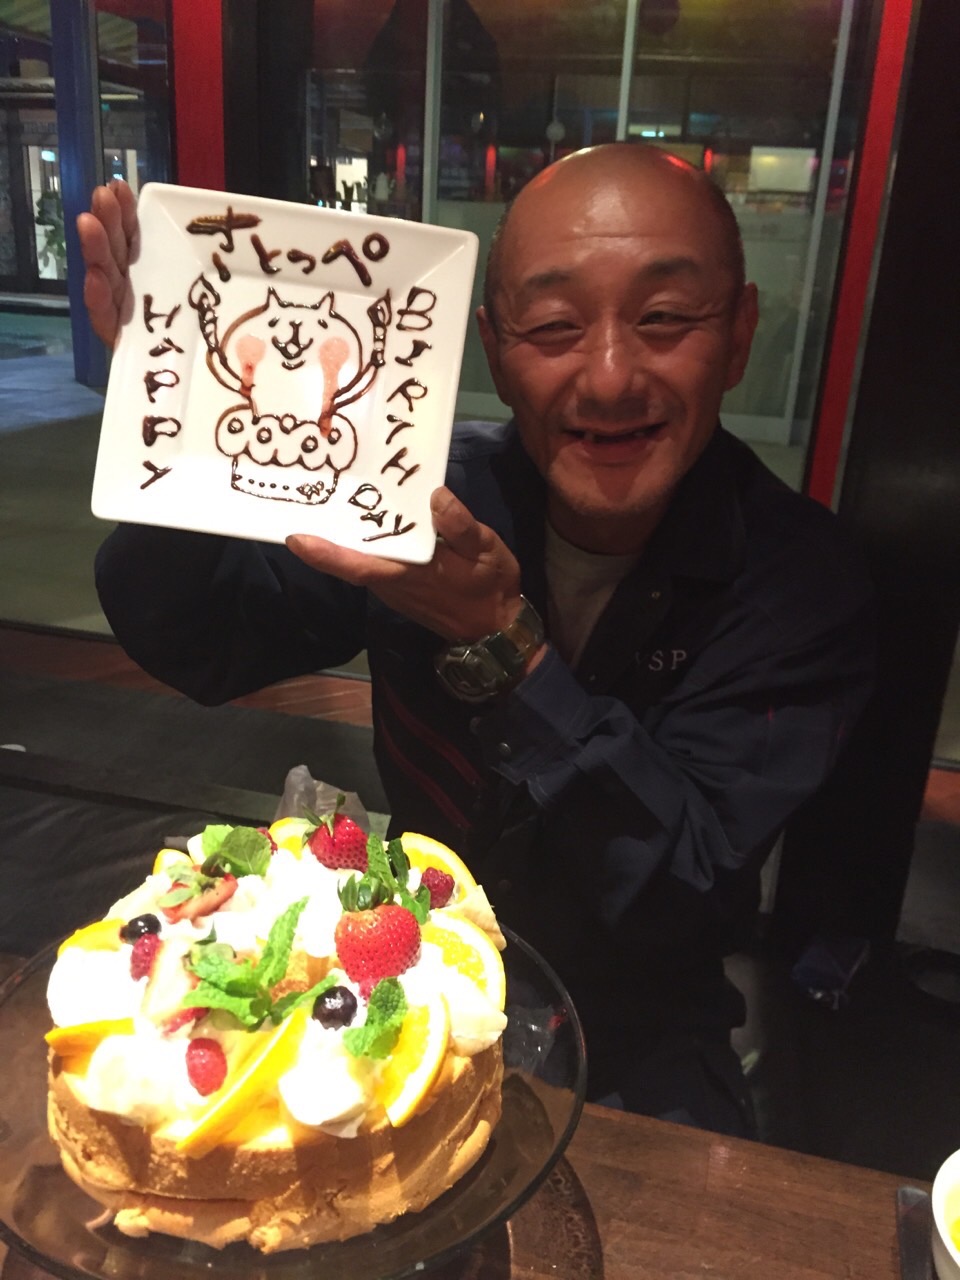 さとっぺ
HAPPY
BIRTH
DAY
SP